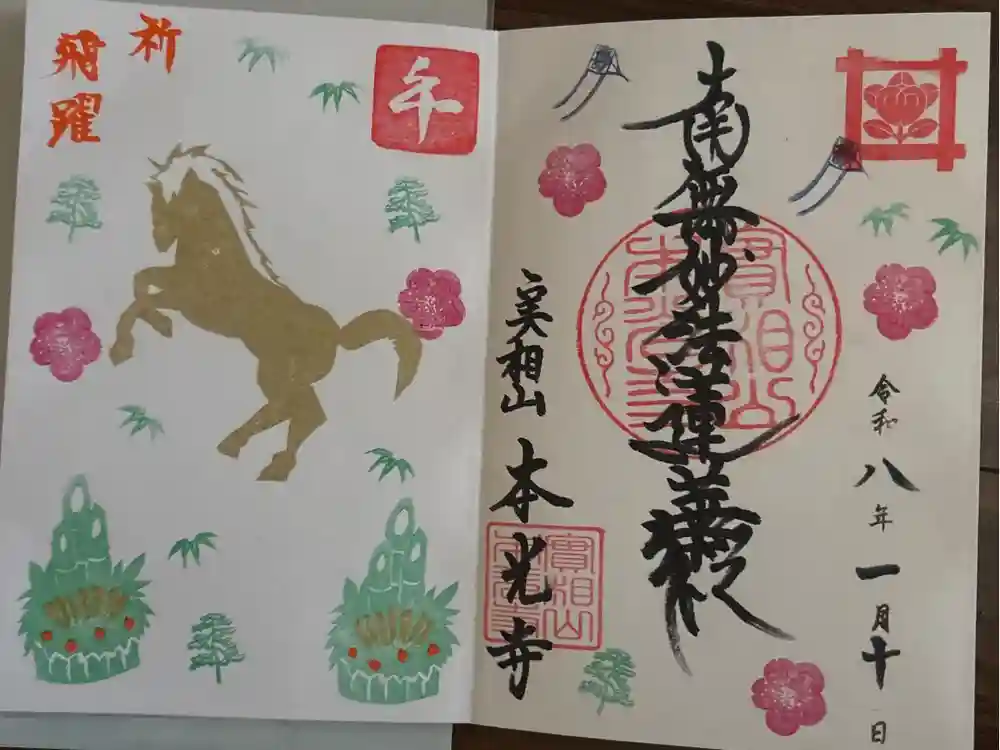 令和八年一月十日
南無妙法蓮華経
實相山
本光寺
實相山
本光寺
実相山
本光寺
午
祈
飛躍